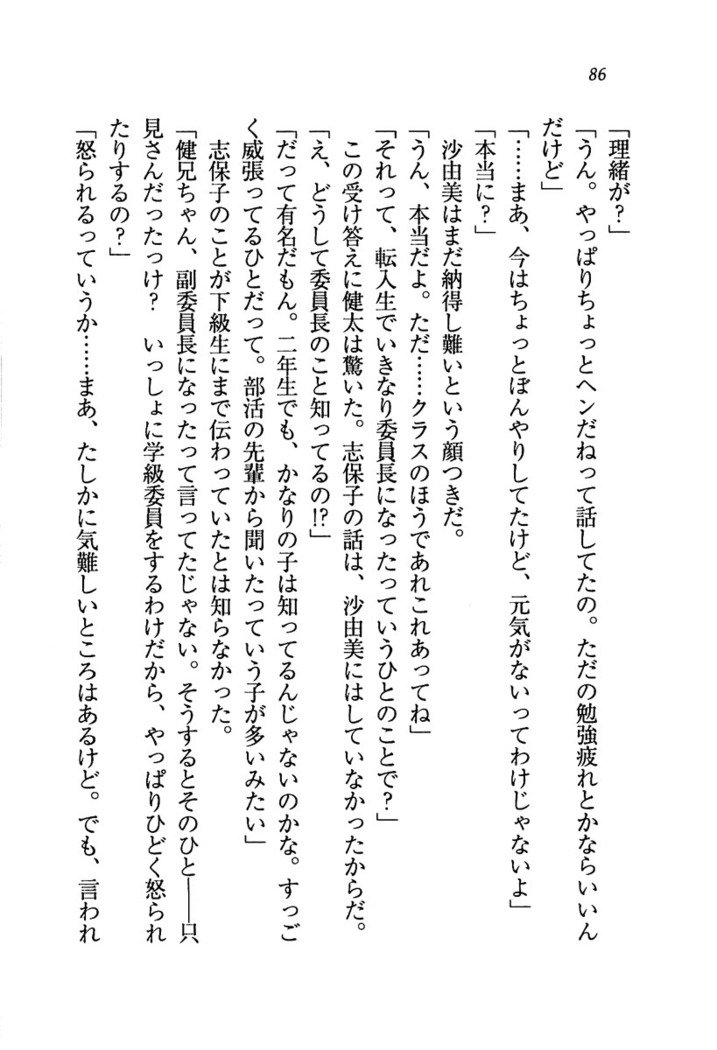 86
「理緒が？」
「うん。やっぱりちょっとヘンだねって話してたの。ただの勉強疲れとかならいいん
だけど」
「……まあ、今はちょっとぼんやりしてたけど、元気がないってわけじゃないよ」
「本当に？」
沙由美はまだ納得し難いという顔つきだ。
「うん、本当だよ。ただ……クラスのほうであれこれあってね」
「それって、転入生でいきなり委員長になったっていうひとのことで？」
この受け答えに健太は驚いた。志保子の話は、沙由美にはしていなかったからだ。
「え、どうして委員長のこと知ってるの!?」
「だって有名だもん。二年生でも、かなりの子は知ってるんじゃないのかな。すっご
く威張ってるひとだって。部活の先輩から聞いたっていう子が多いみたい」
志保子のことが下級生にまで伝わっていたとは知らなかった。
「健兄ちゃん、副委員長になったって言ってたじゃない。そうするとそのひと――只
見さんだったっけ？　いっしょに学級委員をするわけだから、やっぱりひどく怒られ
たりするの？」
「怒られるっていうか……まあ、たしかに気難しいところはあるけど。でも、言われ